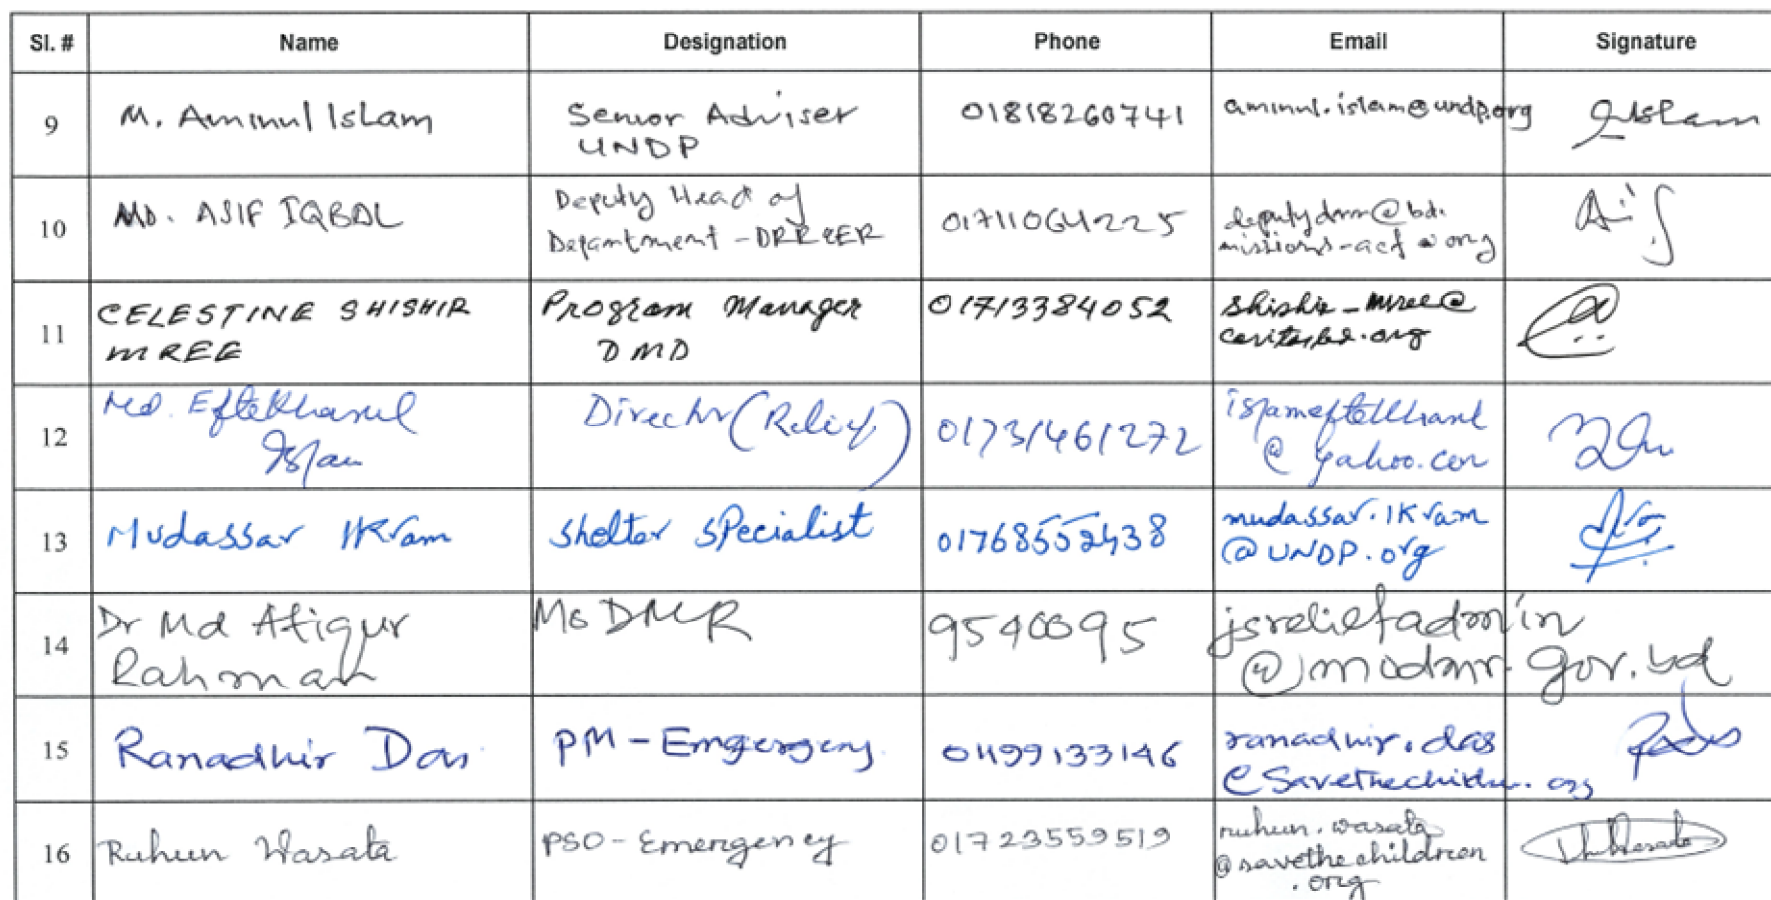 Sl. # Name Designation Phone Email Signature
9 M. Aminul Islam Senior Adviser 01818260741 aminul.islam@undp.org Islam
UNDP
10 MD. ASIF IQBAL Deputy Head of 01711064225 deputydrm@bd.
Department - DRR&ER missions-acf.org
11 CELESTINE SHISHIR Program Manager 01713384052 shishir_mree@
MREE DMD caritasbd.org
12 Md. Eftekharul Director (Relief) 01731461272 islameftekharul
Islam @yahoo.com
13 Mudassar Ikram Shelter Specialist 01768552438 mudassar.ikram
@UNDP.org
14 Dr Md Atiqur MoDMR 9540095 jsreliefadmin
Rahman @modmr.gov.bd
15 Ranadhir Das PM - Emgergeny 01199133146 ranadhir.das
@Savethechildren.org
16 Ruhun Wasata PSO - Emergency 01723559519 ruhun.wasata
@savethechildreen
.org